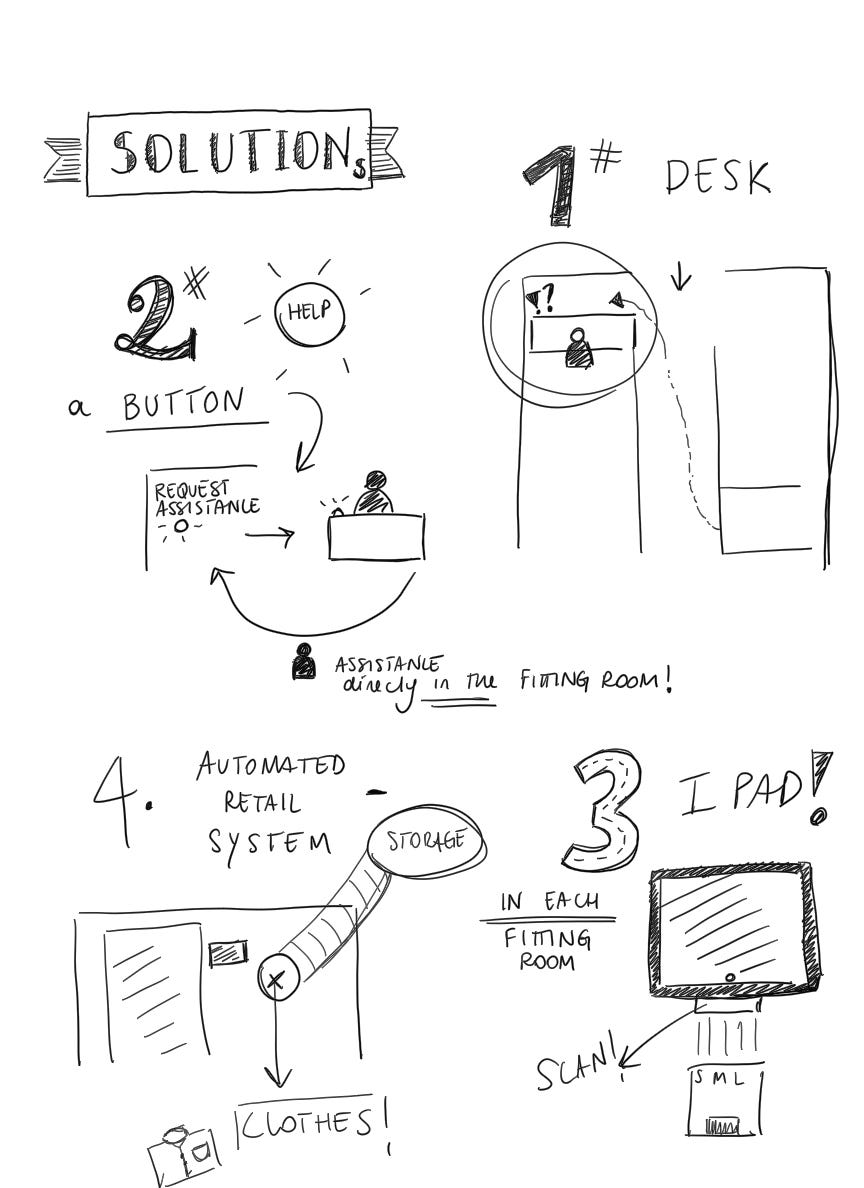 SOLUTIONS
1# DESK
?
2#
HELP
a BUTTON
REQUEST
ASSISTANCE
ASSISTANCE
directly in the FITTING ROOM!
3 IPAD!
IN EACH
FITTING
ROOM
SCAN!
S M L
4. AUTOMATED
RETAIL -
SYSTEM
STORAGE
X
CLOTHES!